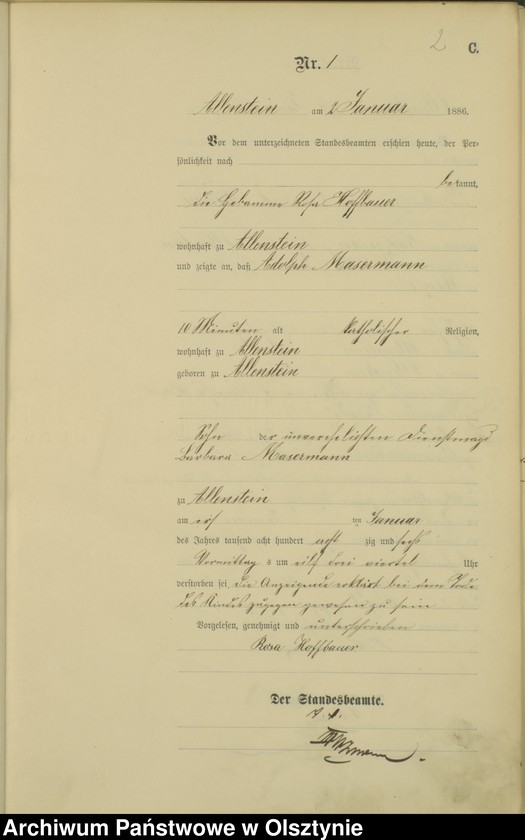 2 C.
Nr. 1
Allenstein am 2 Januar 1886.
Vor dem unterzeichneten Standesbeamten erschien heute, der Per-
sönlichkeit nach
bekannt,
die Hebamme Rosa Hoffbauer
wohnhaft zu Allenstein
und zeigte an, daß Adolph Masermann
10 Minuten alt katholischer Religion,
wohnhaft zu Allenstein
geboren zu Allenstein
Sohn der unverehelichten Dienstmagd
Barbara Masermann
zu Allenstein
am ersten Januar
des Jahres tausend acht hundert achtzig und sechs
Vormittags um eilf drei viertel Uhr
verstorben sei, die Anzeigende erklärt bei dem Tode
des Kindes zugegen gewesen zu sein
Vorgelesen, genehmigt und unterschrieben
Rosa Hoffbauer
Der Standesbeamte.
Archiwum Państwowe w Olsztynie